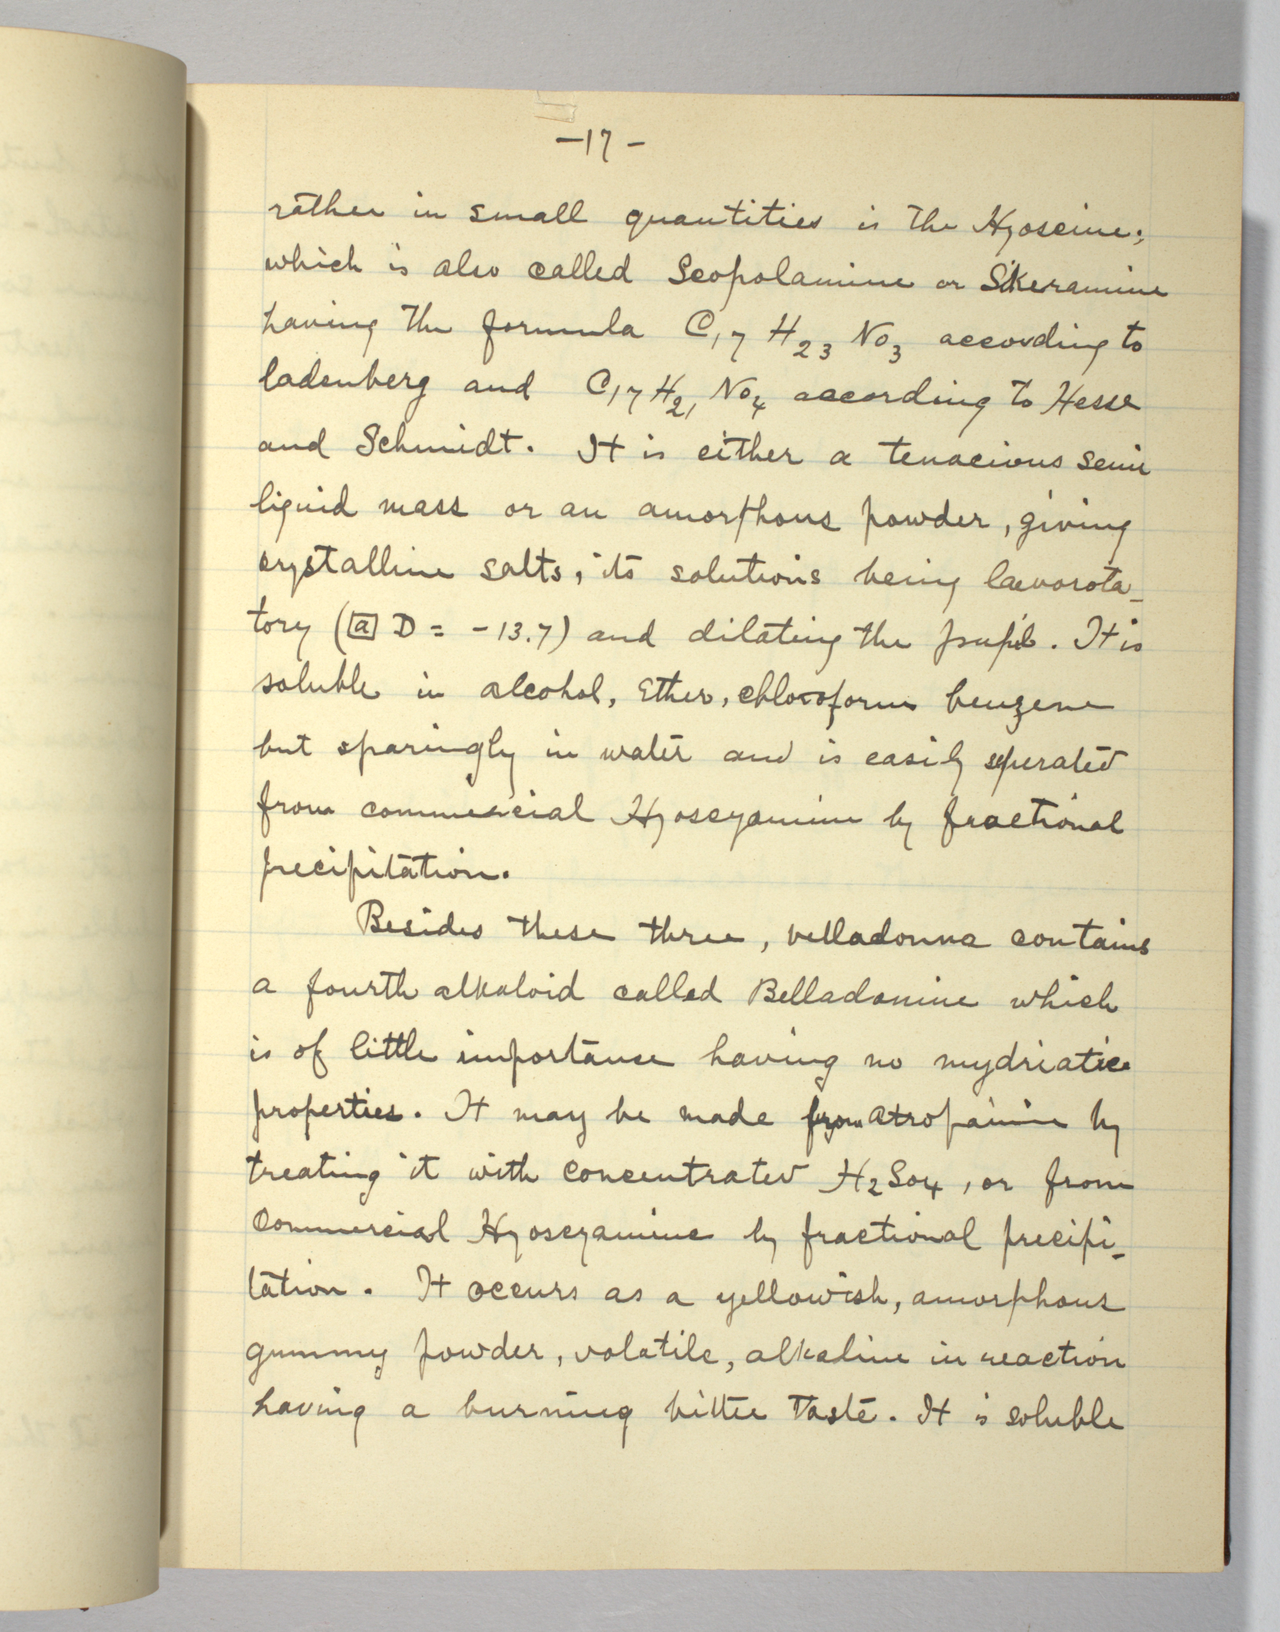 -17-
rather in small quantities is the Hyoscine;
which is also called Scopolamine or Sikeramine
having the formula C17 H23 No3 according to
ladenberg and C17 H21 No4 according to Hesse
and Schmidt. It is either a tenacious semi
liquid mass or an amorphous powder, giving
crystalline salts, its solutions being laevorota-
tory ([a] D = -13.7) and dilating the pupil. It is
soluble in alcohol, Ether, chloroform benzene
but sparingly in water and is easily seperated
from commercial Hyoscyamine by fractional
precipitation.
Besides these three, belladonna contains
a fourth alkaloid called Belladonine which
is of little importance having no mydriatic
properties. It may be made from atropamine by
treating it with concentrated H2So4, or from
commercial Hyoscyamine by fractional precipi-
tation. It occurs as a yellowish, amorphous
gummy powder, volatile, alkaline in reaction
having a burning bitter taste. It is soluble